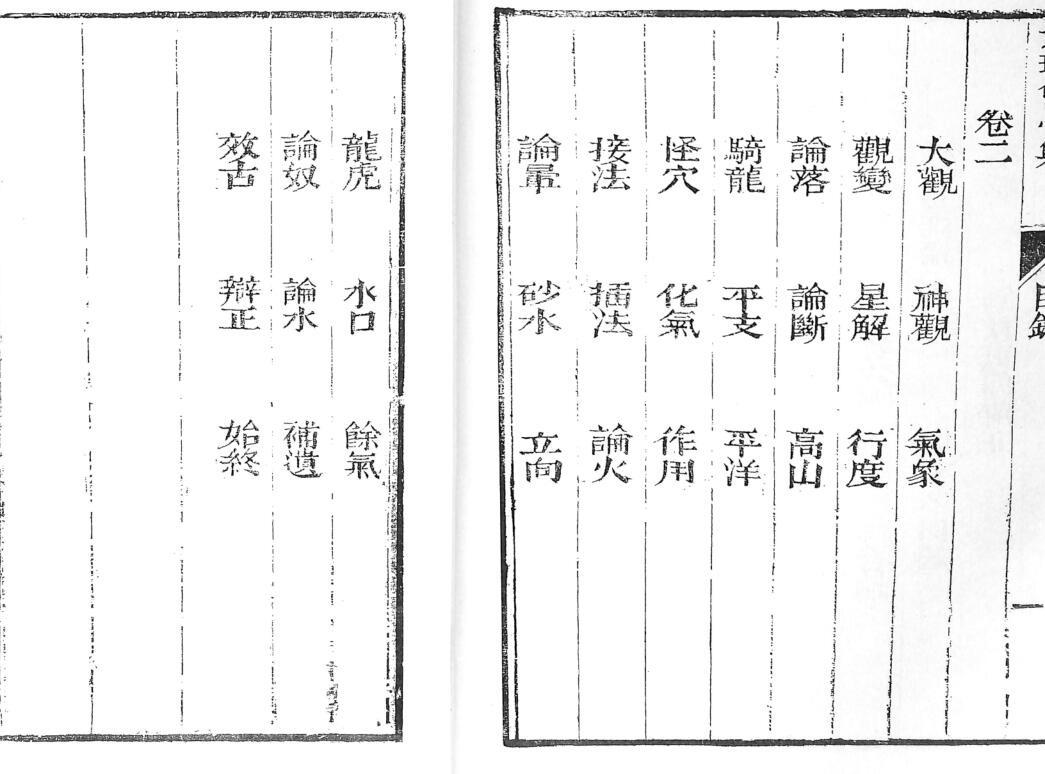 目錄
一
卷二
大觀　神觀　氣象
觀變　星解　行度
論落　論斷　高山
騎龍　平支　平洋
怪穴　化氣　作用
接法　插法　論火
論暈　砂水　立向
龍虎　水口　餘氣
論奴　論水　補遺
效古　辯正　始終